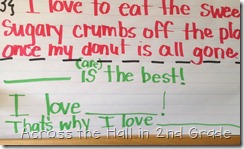 I love to eat the swee
Sugary crumbs off the pla
once my donut is all gone.
(are)
______ is the best!
I love ______!
That's why I love ______
Across the Hall in 2nd Grade